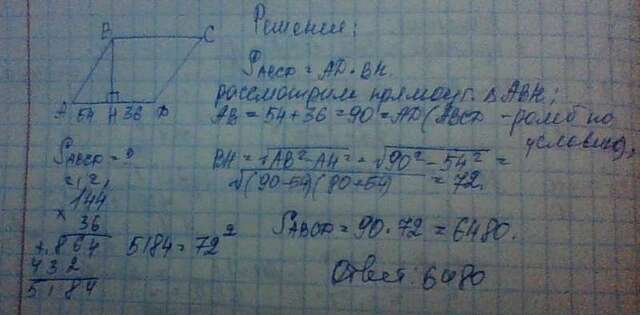 Решение:
B
C
A 54 H 36 D
S ABCD = AD · BH.
рассмотрим прямоуг. Δ ABH;
AB = 54 + 36 = 90 = AD (ABCD - ромб по
условию);
S ABCD = ?
BH = √AB² - AH² = √90² - 54² =
√(90-54)(90+54) = 72.
144
×
36
+ 864
432
5184
5184 = 72²
S ABCD = 90 · 72 = 6480.
Ответ: 6480